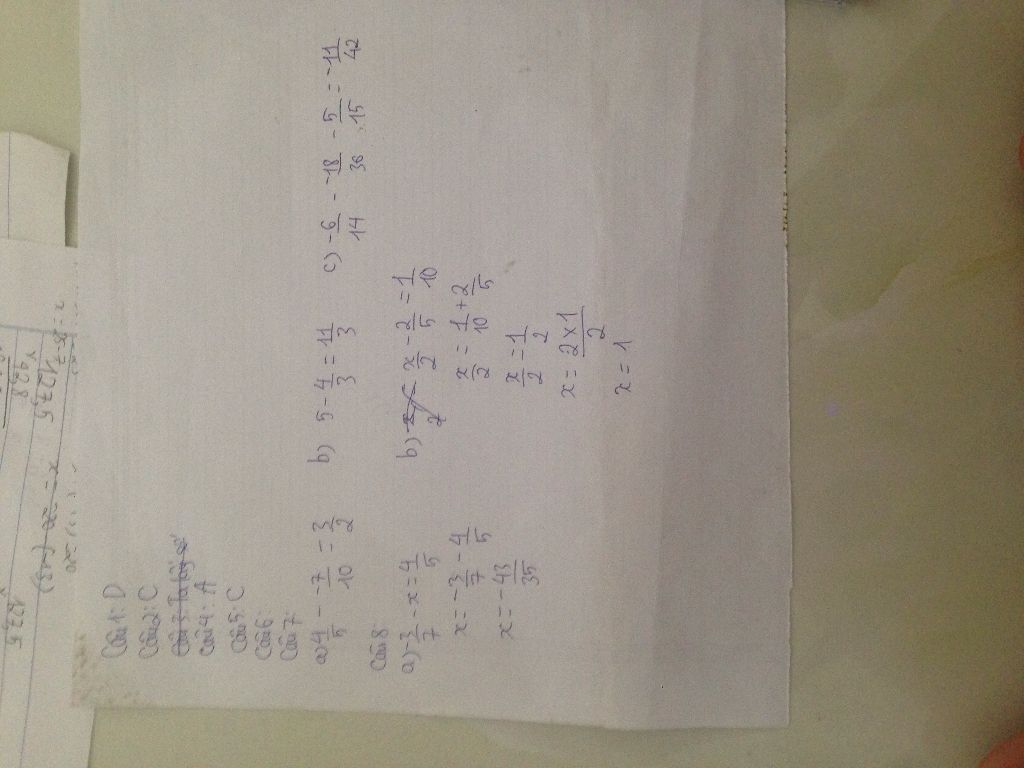 Câu 1: D
Câu 2: C
Câu 4: A
Câu 5: C
Câu 6:
Câu 7:
a) 4/5 - -7/10 = 3/2
b) 5 - 4/3 = 11/3
c) -6/14 - -18/36 - 5/15 = -11/42
Câu 8:
a) -3/7 - x = 4/5
x = -3/7 - 4/5
x = -43/35
b) x/2 - 2/5 = 1/10
x/2 = 1/10 + 2/5
x/2 = 1/2
x = 2 x 1/2
x = 1